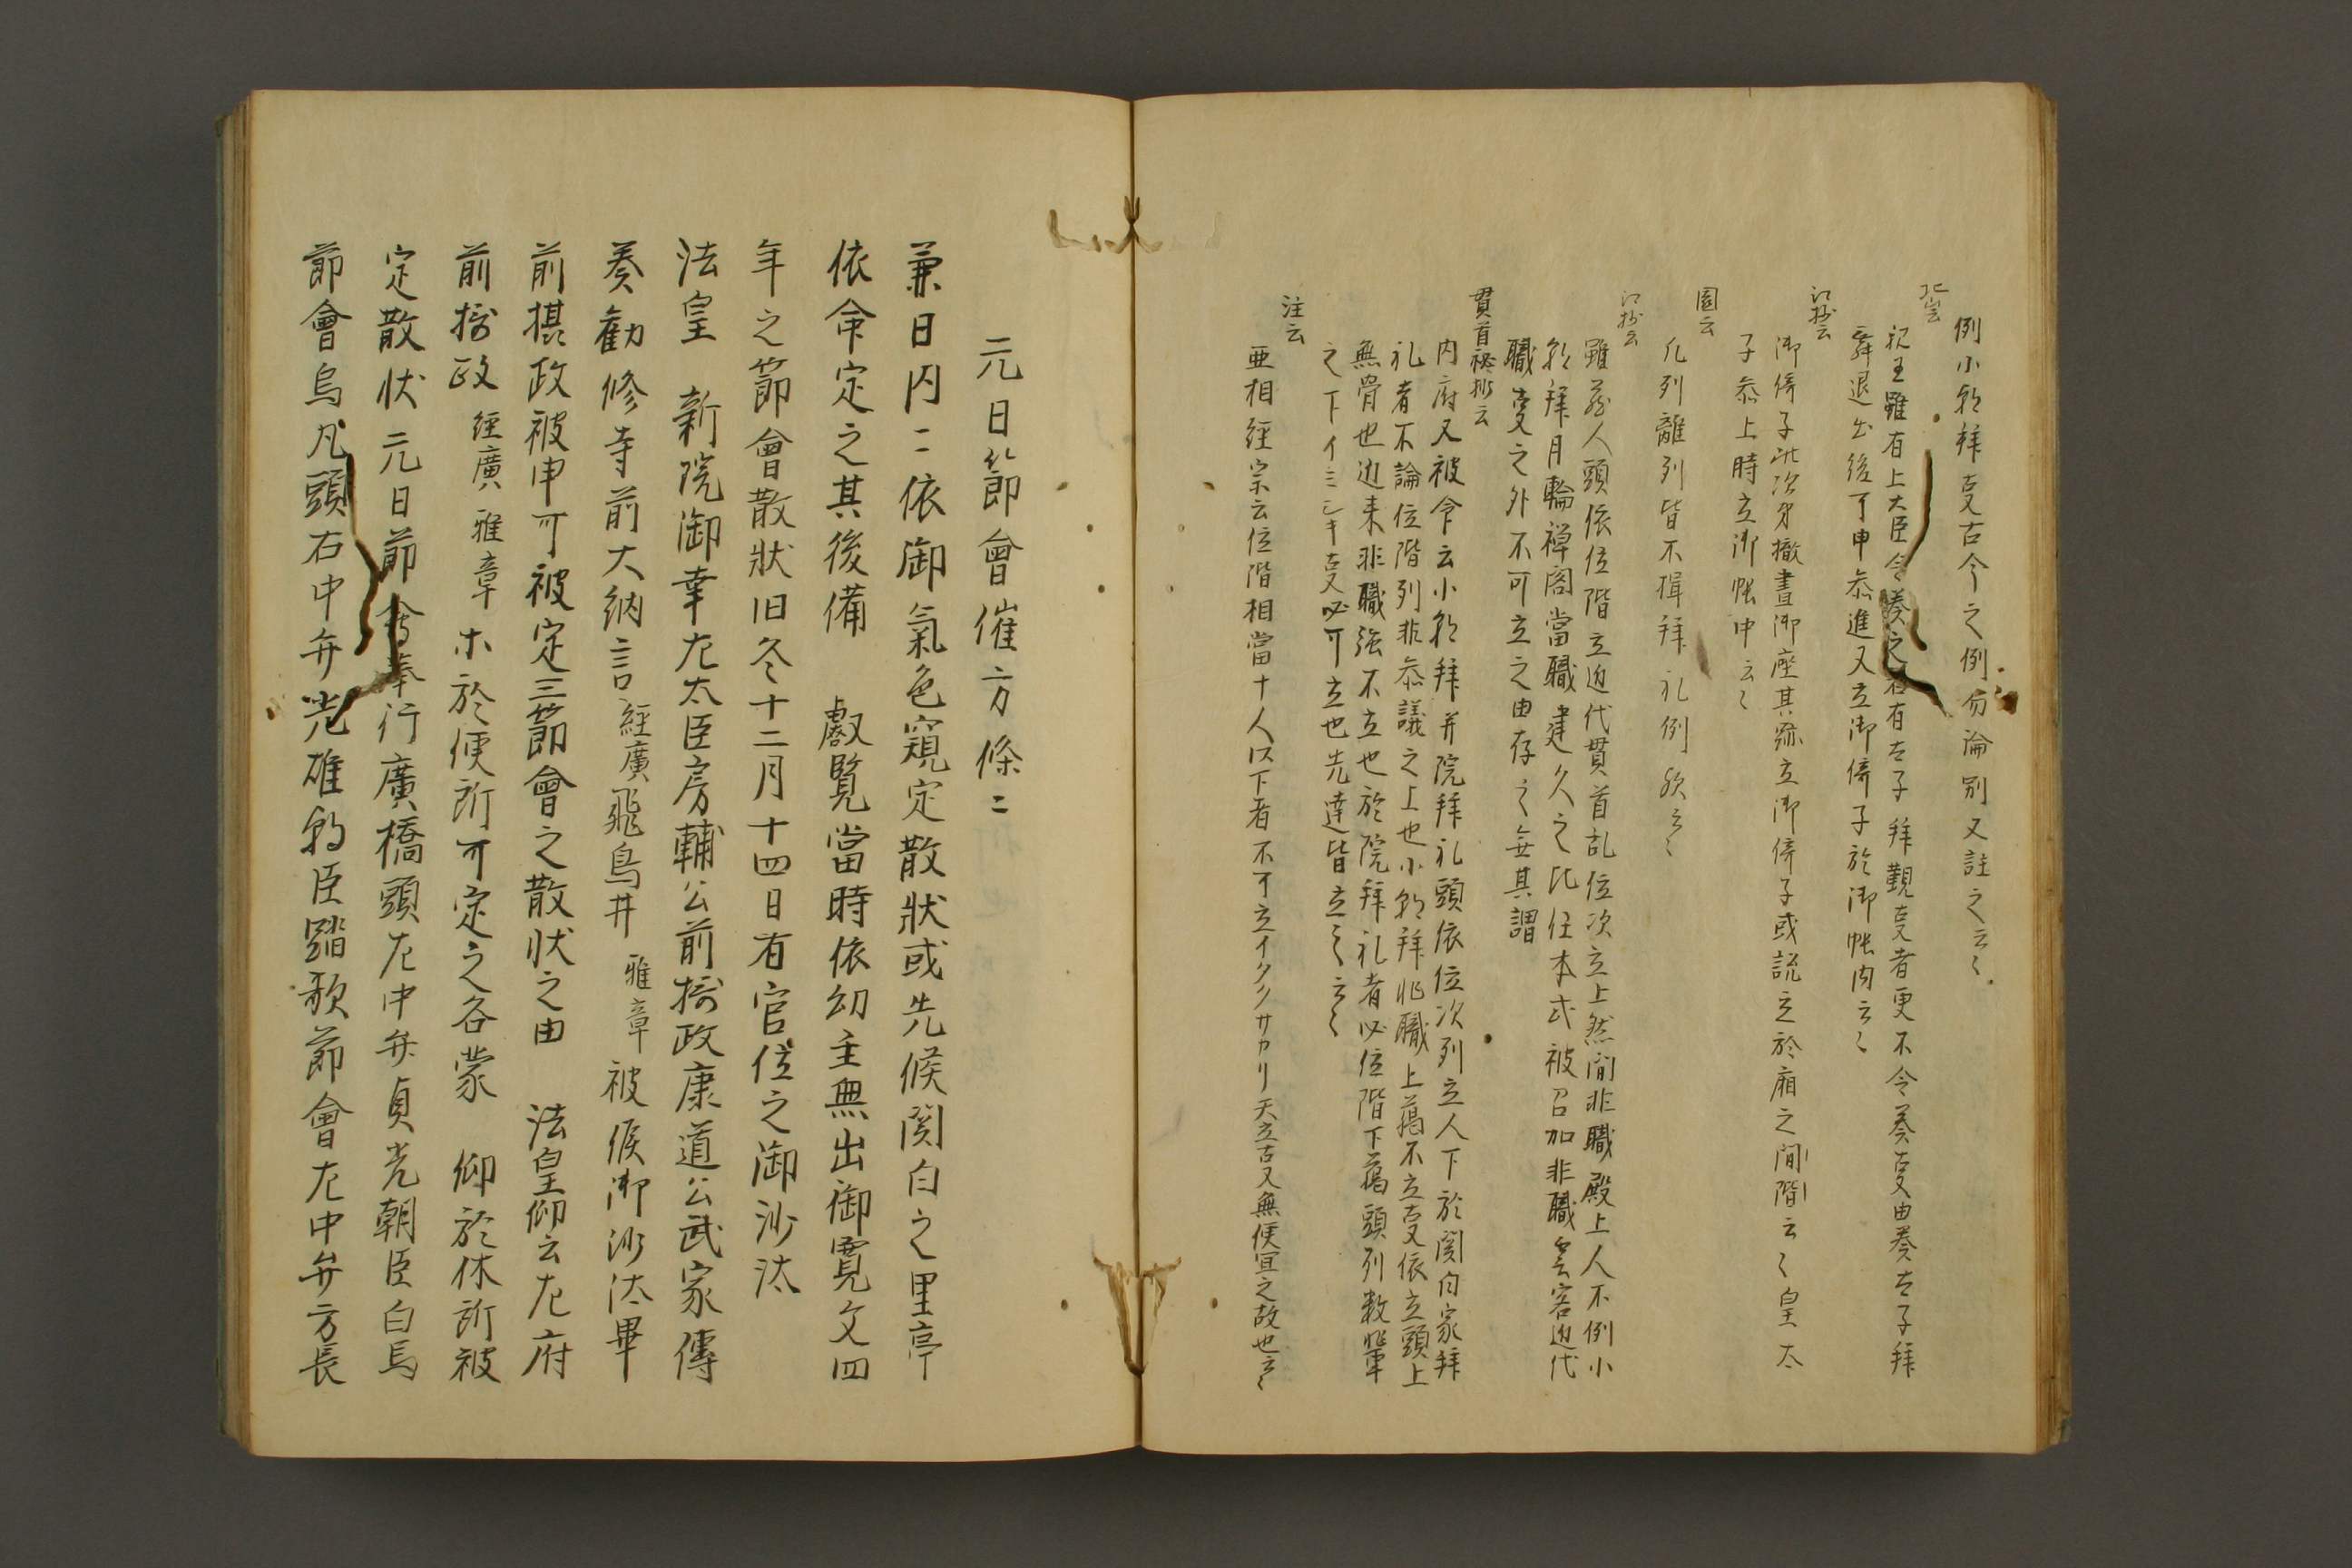 例小朝拝事古今之例勿論別又註之云々
北山云
親王雖有上大臣令奏之若有太子拝覲事者更不令奏事由奏太子拝
舞退出後可申参進又立御倚子於御帳内云々
江抄云
御倚子此次第撤晝御座其跡立御倚子或説立於廂之間階云々皇太
子参上時立御帳中云々
園云
凡列離列皆不揖拝礼例歟云々
江抄云
雖蔵人頭依位階立近代貫首乱位次立上然間非職殿上人不例小
朝拝月輪禅閤當職建久之比任本式被召加非職雲客近代
職事之外不可立之由存之無其謂
貫首秘抄云
内府又被命云小朝拝并院拝礼頭依位次列立人下於関白家拝
礼者不論位階列非参議之上也小朝拝非職上臈不立事依立頭上
無骨也近来非職強不立也於院拝礼者必位階下臈頭列数輩
之下イミシキ事必可立也先達皆立之云々
注云
亜相経宗云位階相當十人以下者不可立イタクサカリ天立古又無便宜之故也云々
元日節會催方條々
兼日内々依御氣色窺定散狀或先候関白之里亭
依命定之其後備 叡覧當時依幼主無出御寛文四
年之節會散狀旧冬十二月十四日有官位之御沙汰
法皇 新院御幸左大臣房輔公前摂政康道公武家傳
奏勸修寺前大納言經廣飛鳥井雅章被候御沙汰畢
前摂政被申可被定三節會之散状之由 法皇仰云左府
前摂政 經廣 雅章 木於便所可定之各蒙 仰於休所被
定散状元日節會奉行廣橋頭左中弁貞光朝臣白馬
節會烏丸頭右中弁光雄朝臣踏歌節會左中弁方長